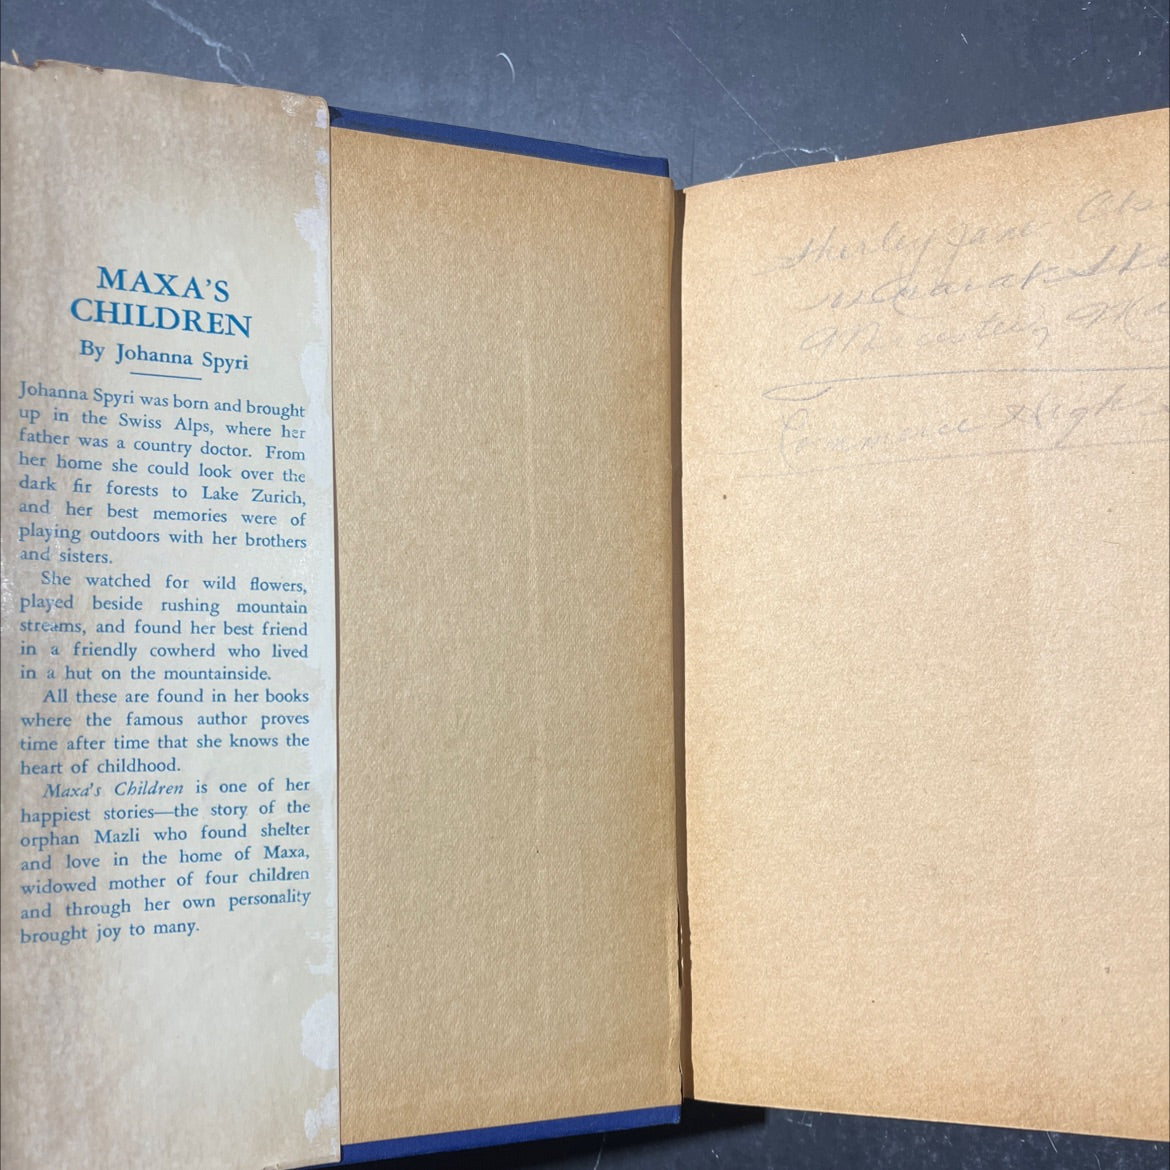 MAXA'S
CHILDREN
By Johanna Spyri
Johanna Spyri was born and brought
up in the Swiss Alps, where her
father was a country doctor. From
her home she could look over the
dark fir forests to Lake Zurich,
and her best memories were of
playing outdoors with her brothers
and sisters.
She watched for wild flowers,
played beside rushing mountain
streams, and found her best friend
in a friendly cowherd who lived
in a hut on the mountainside.
All these are found in her books
where the famous author proves
time after time that she knows the
heart of childhood.
Maxa's Children is one of her
happiest stories—the story of the
orphan Mazli who found shelter
and love in the home of Maxa,
widowed mother of four children
and through her own personality
brought joy to many.
Shirley Jane